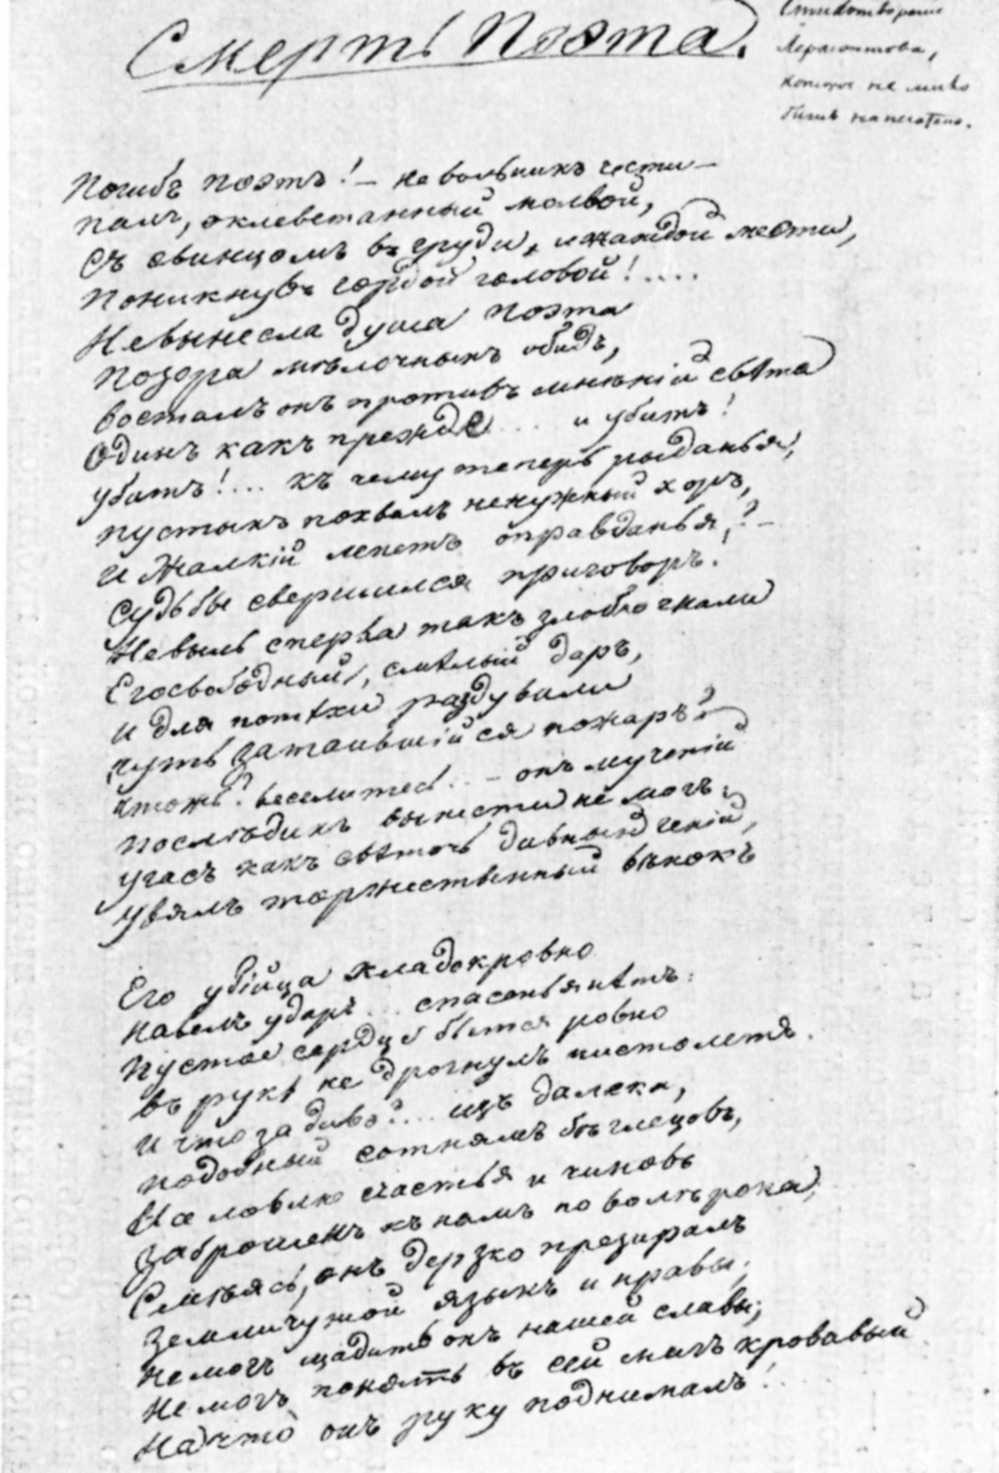 Смерть Поэта.
Стихотворение
Лермонтова,
которое не могло
быть напечатано.
Погибъ поэтъ! – невольникъ чести –
палъ, оклеветанный молвой,
Съ свинцомъ въ груди, и жаждой мести,
Поникнувъ гордой головой!....
Не вынесла душа поэта
Позора мѣлочныхъ обидъ,
возсталъ онъ противъ мнѣній свѣта
Одинъ какъ прежде.... и убитъ!
убитъ!... къ чему теперь рыданья,
пустыхъ похвалъ ненужный хоръ,
И Жалкій лепетъ оправданья?–
Судьбы свершился приговоръ.
Не выль сперва такъ злобно гнали
Его свободный, смѣлый даръ,
и для потѣхи раздували
чуть затаившійся пожаръ?
чтожъ? веселитесь... – онъ мученій
послѣднихъ вынести не могъ,
угасъ какъ свѣточь дивный геній,
увялъ торжественный вѣнокъ
Его убійца хладокровно
навелъ ударъ... спасенья нѣтъ:
Пустое сердце бьется ровно
въ рукѣ не дрогнулъ пистолетъ.
и что за диво?... изъ далека,
подобный сотнямъ бѣглецовъ,
На ловлю счастья и чиновъ
Заброшенъ къ намъ по волѣ рока,
Смѣясь, онъ дерзко презиралъ
Земли чужой языкъ и нравы;
не могъ щадить онъ нашей славы;
Не могъ понять въ сей мигъ кровавый
На что онъ руку поднималъ!..